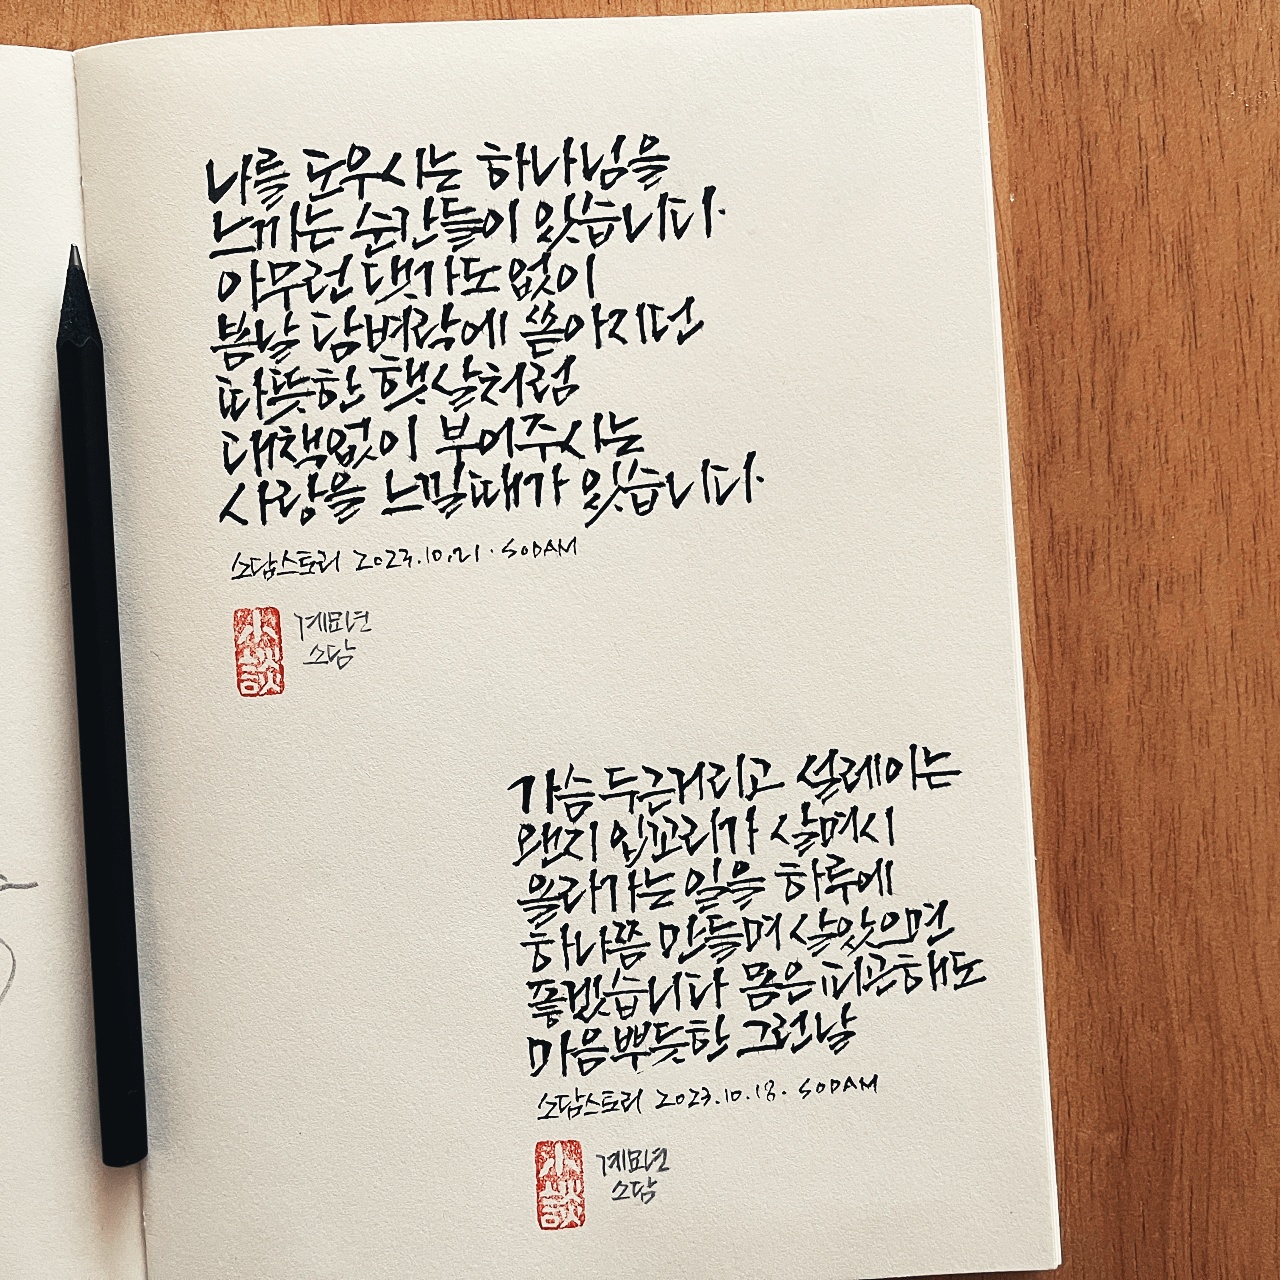 나를 도우시는 하나님을
느끼는 순간들이 있습니다.
아무런 댓가도 없이
봄날 담벼락에 쏟아지던
따뜻한 햇살처럼
대책없이 부어주시는
사랑을 느낄때가 있습니다.
소담스토리 2023.10.21. SODAM
小談
계묘년
소담
가슴 두근거리고 설레이는
왠지 입꼬리가 살며시
올라가는 일을 하루에
하나쯤 만들며 살았으면
좋겠습니다 몸은 피곤해도
마음 뿌듯한 그런날
소담스토리 2023.10.18. SODAM
小談
계묘년
소담